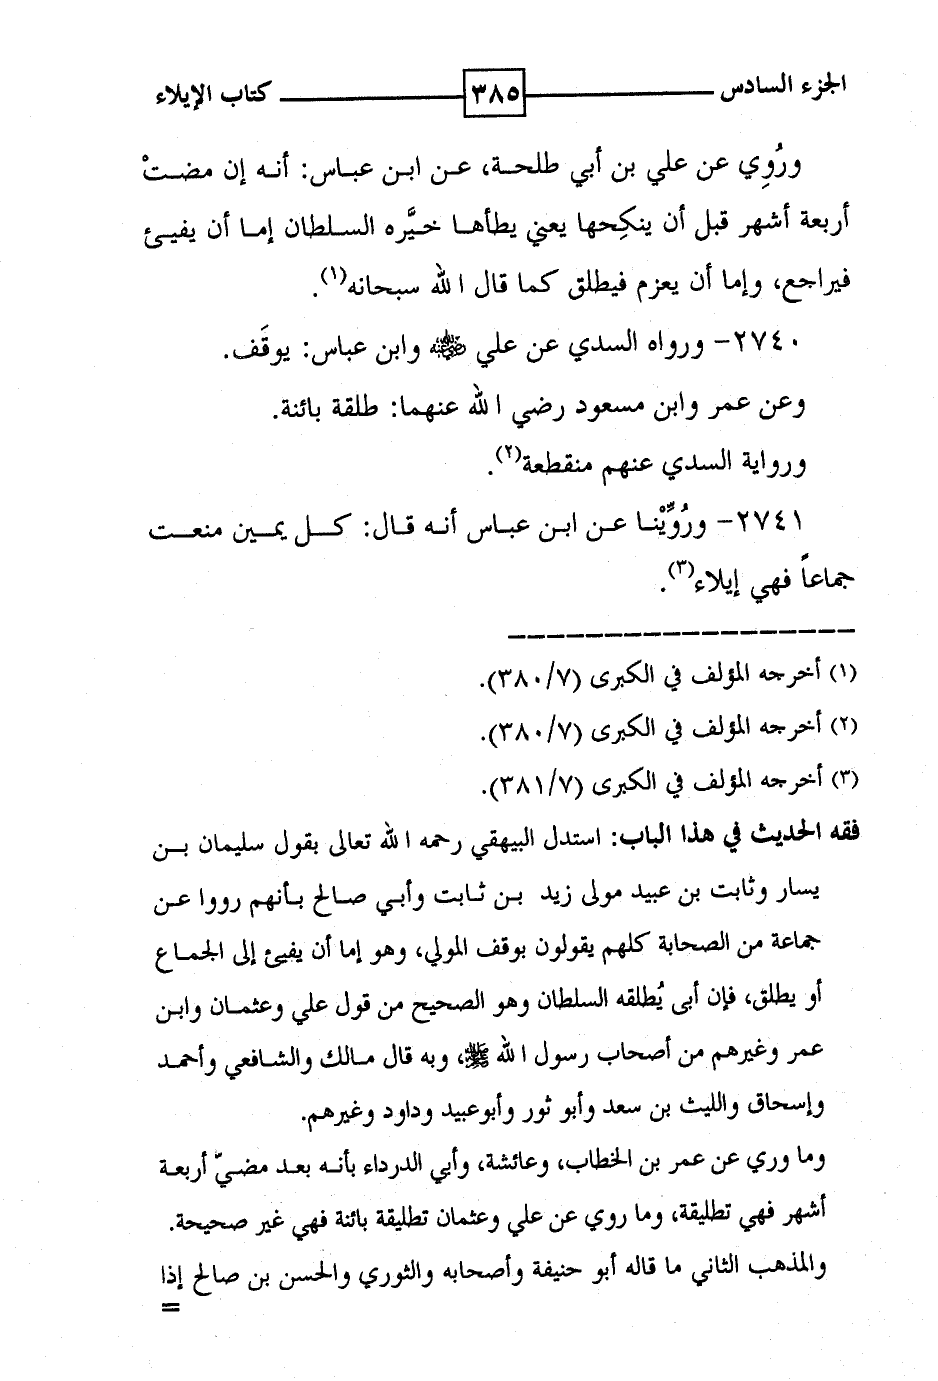 الجزء السادس ٣٨٥ كتاب الإيلاء
ورُوِي عن علي بن أبي طلحة، عن ابن عباس: أنه إن مضتْ
أربعة أشهر قبل أن ينكِحها يعني يطأها خيَّره السلطان إما أن يفيئ
فيراجع، وإما أن يعزم فيطلق كما قال الله سبحانه(١).
٢٧٤٠- ورواه السدي عن علي رضي الله عنه وابن عباس: يوقَف.
وعن عمر وابن مسعود رضي الله عنهما: طلقة بائنة.
ورواية السدي عنهم منقطعة(٢).
٢٧٤١- ورُوِّيْنا عن ابن عباس أنه قال: كل يمين منعت
جماعاً فهي إيلاء(٣).
(١) أخرجه المؤلف في الكبرى (٣٨٠/٧).
(٢) أخرجه المؤلف في الكبرى (٣٨٠/٧).
(٣) أخرجه المؤلف في الكبرى (٣٨١/٧).
فقه الحديث في هذا الباب: استدل البيهقي رحمه الله تعالى بقول سليمان بن
يسار وثابت بن عبيد مولى زيد بن ثابت وأبي صالح بأنهم رووا عن
جماعة من الصحابة كلهم يقولون بوقف المولي، وهو إما أن يفيئ إلى الجماع
أو يطلق، فإن أبى يُطلقه السلطان وهو الصحيح من قول علي وعثمان وابن
عمر وغيرهم من أصحاب رسول الله ﷺ، وبه قال مالك والشافعي وأحمد
وإسحاق والليث بن سعد وأبو ثور وأبوعبيد وداود وغيرهم.
وما وري عن عمر بن الخطاب، وعائشة، وأبي الدرداء بأنه بعد مضيّ أربعة
أشهر فهي تطليقة، وما روي عن علي وعثمان تطليقة بائنة فهي غير صحيحة.
والمذهب الثاني ما قاله أبو حنيفة وأصحابه والثوري والحسن بن صالح إذا
=